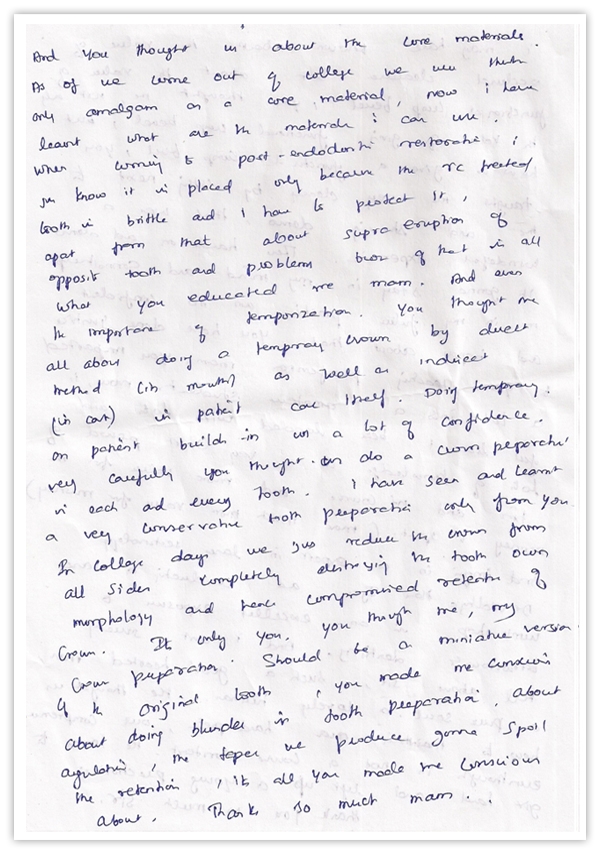 And you thought us about the core materials.
As of we come out of college we use
only amalgam as a core material, now i have
learnt what are the materials i can use
when coming to post-endodontic restoration,
is placed only because the rc treated
tooth is brittle and I have to protect it,
apart from that about supra eruption of
opposit tooth and problems of that is all
what you educated me mam. And even
the importance of temporization. You thought me
all about doing a temporary crown by direct
method (in mouth) as well as indirect
(in cast) in patient itself. Doing temporary
on patient builds in us a lot of confidence.
very carefully you thought do a crown peparation
in each and every tooth. I have seen and learnt
a very conservative tooth preparation only from you
In college days we jus reduce the crown from
all sides completely destroying the tooth own
morphology and hence compromised retention of
crown. Its only you, you though me, my
crown preparation should be a miniature version
of the original tooth, you made me conscious
about doing blunder in tooth preparation, about
angulation, the taper we produce gonna spoil
the retention, its all you made me conscious
about. Thanks so much mam.